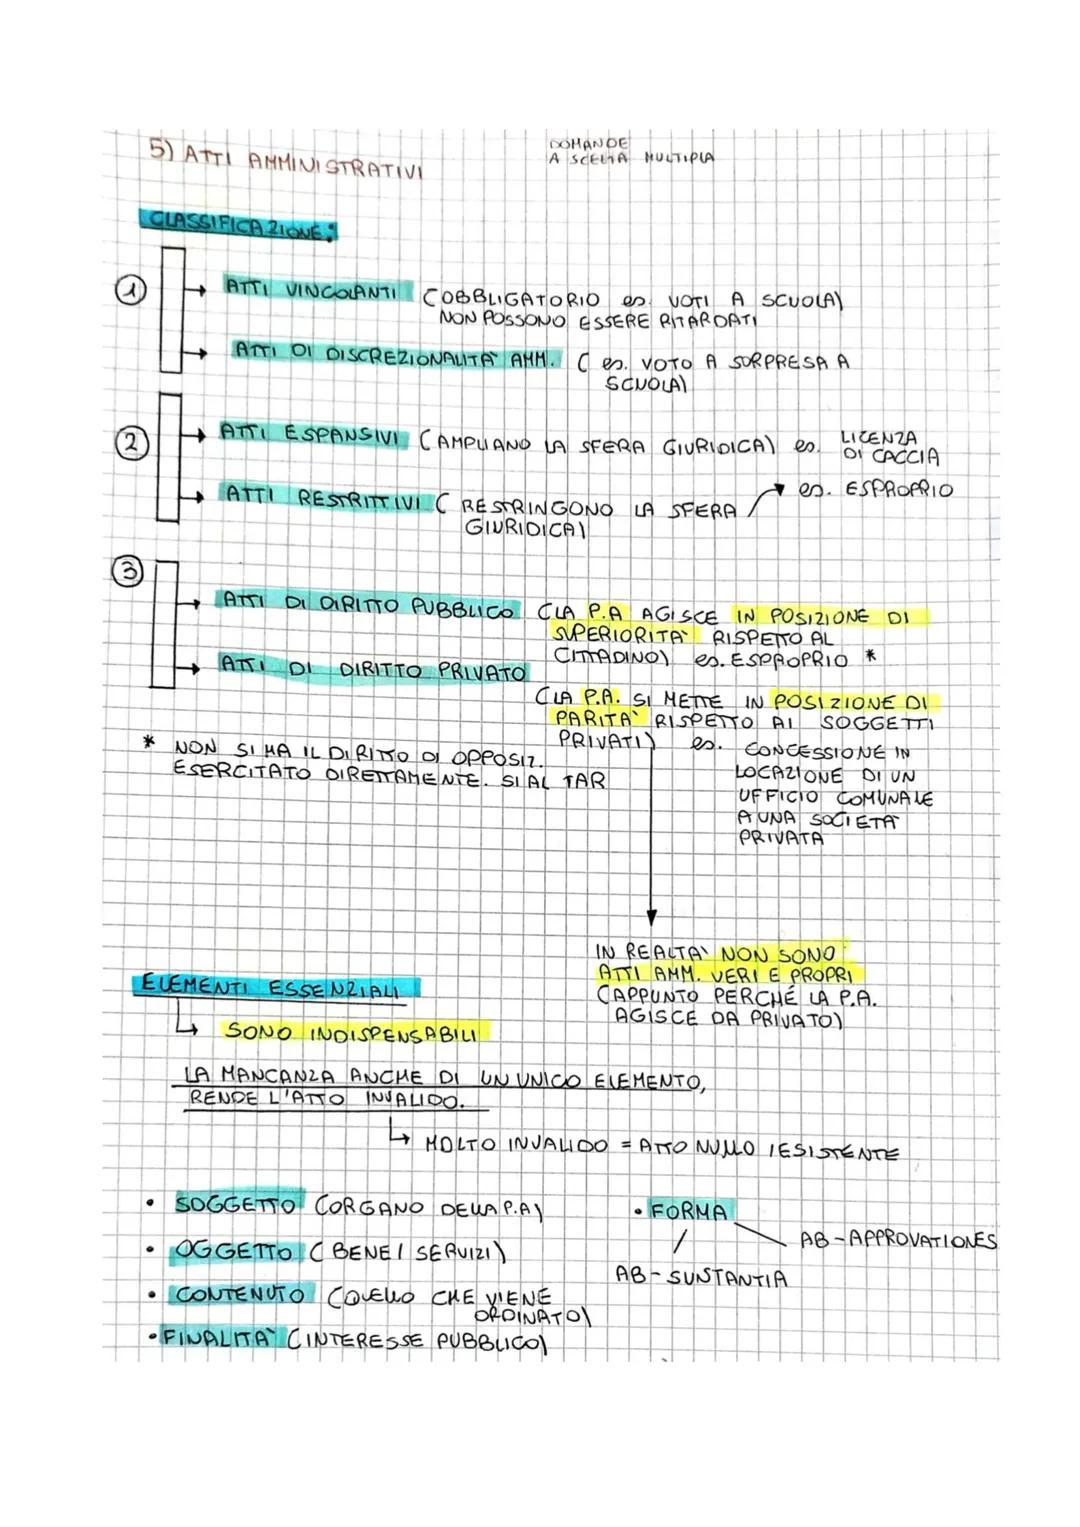 5) ATTI AMMINISTRATIVI
DOMANDE
A SCELTA MULTIPLA
CLASSIFICAZIONE:
1
ATTI VINCOLANTI (OBBLIGATORIO es. VOTI A SCUOLA)
NON POSSONO ESSERE RITARDATI
ATTI DI DISCREZIONALITÀ AMM. ( es. VOTO A SORPRESA A
SCUOLA)
2
ATTI ESPANSIVI (AMPLIANO LA SFERA GIURIDICA) es. LICENZA
DI CACCIA
ATTI RESTRITTIVI ( RESTRINGONO LA SFERA
GIURIDICA)
es. ESPROPRIO
3
ATTI DI DIRITTO PUBBLICO (LA P.A AGISCE IN POSIZIONE DI
SUPERIORITÀ RISPETTO AL
CITTADINO) es. ESPROPRIO *
ATTI DI DIRITTO PRIVATO
(LA P.A. SI METTE IN POSIZIONE DI
PARITÀ RISPETTO AI SOGGETTI
PRIVATI) es. CONCESSIONE IN
LOCAZIONE DI UN
UFFICIO COMUNALE
A UNA SOCIETÀ
PRIVATA
* NON SI HA IL DIRITTO DI OPPOSIZ.
ESERCITATO DIRETTAMENTE. SI AL TAR
IN REALTÀ NON SONO
ATTI AMM. VERI E PROPRI
(APPUNTO PERCHÉ LA P.A.
AGISCE DA PRIVATO)
ELEMENTI ESSENZIALI
SONO INDISPENSABILI
LA MANCANZA ANCHE DI UN UNICO ELEMENTO,
RENDE L'ATTO INVALIDO.
MOLTO INVALIDO = ATTO NULLO IESISTENTE
• SOGGETTO (ORGANO DELLA P.A)
• OGGETTO (BENE/ SERVIZI)
• CONTENUTO (QUELLO CHE VIENE
ORDINATO)
• FINALITÀ (INTERESSE PUBBLICO)
• FORMA
AB-APPROVATIONES
AB-SUNSTANTIA